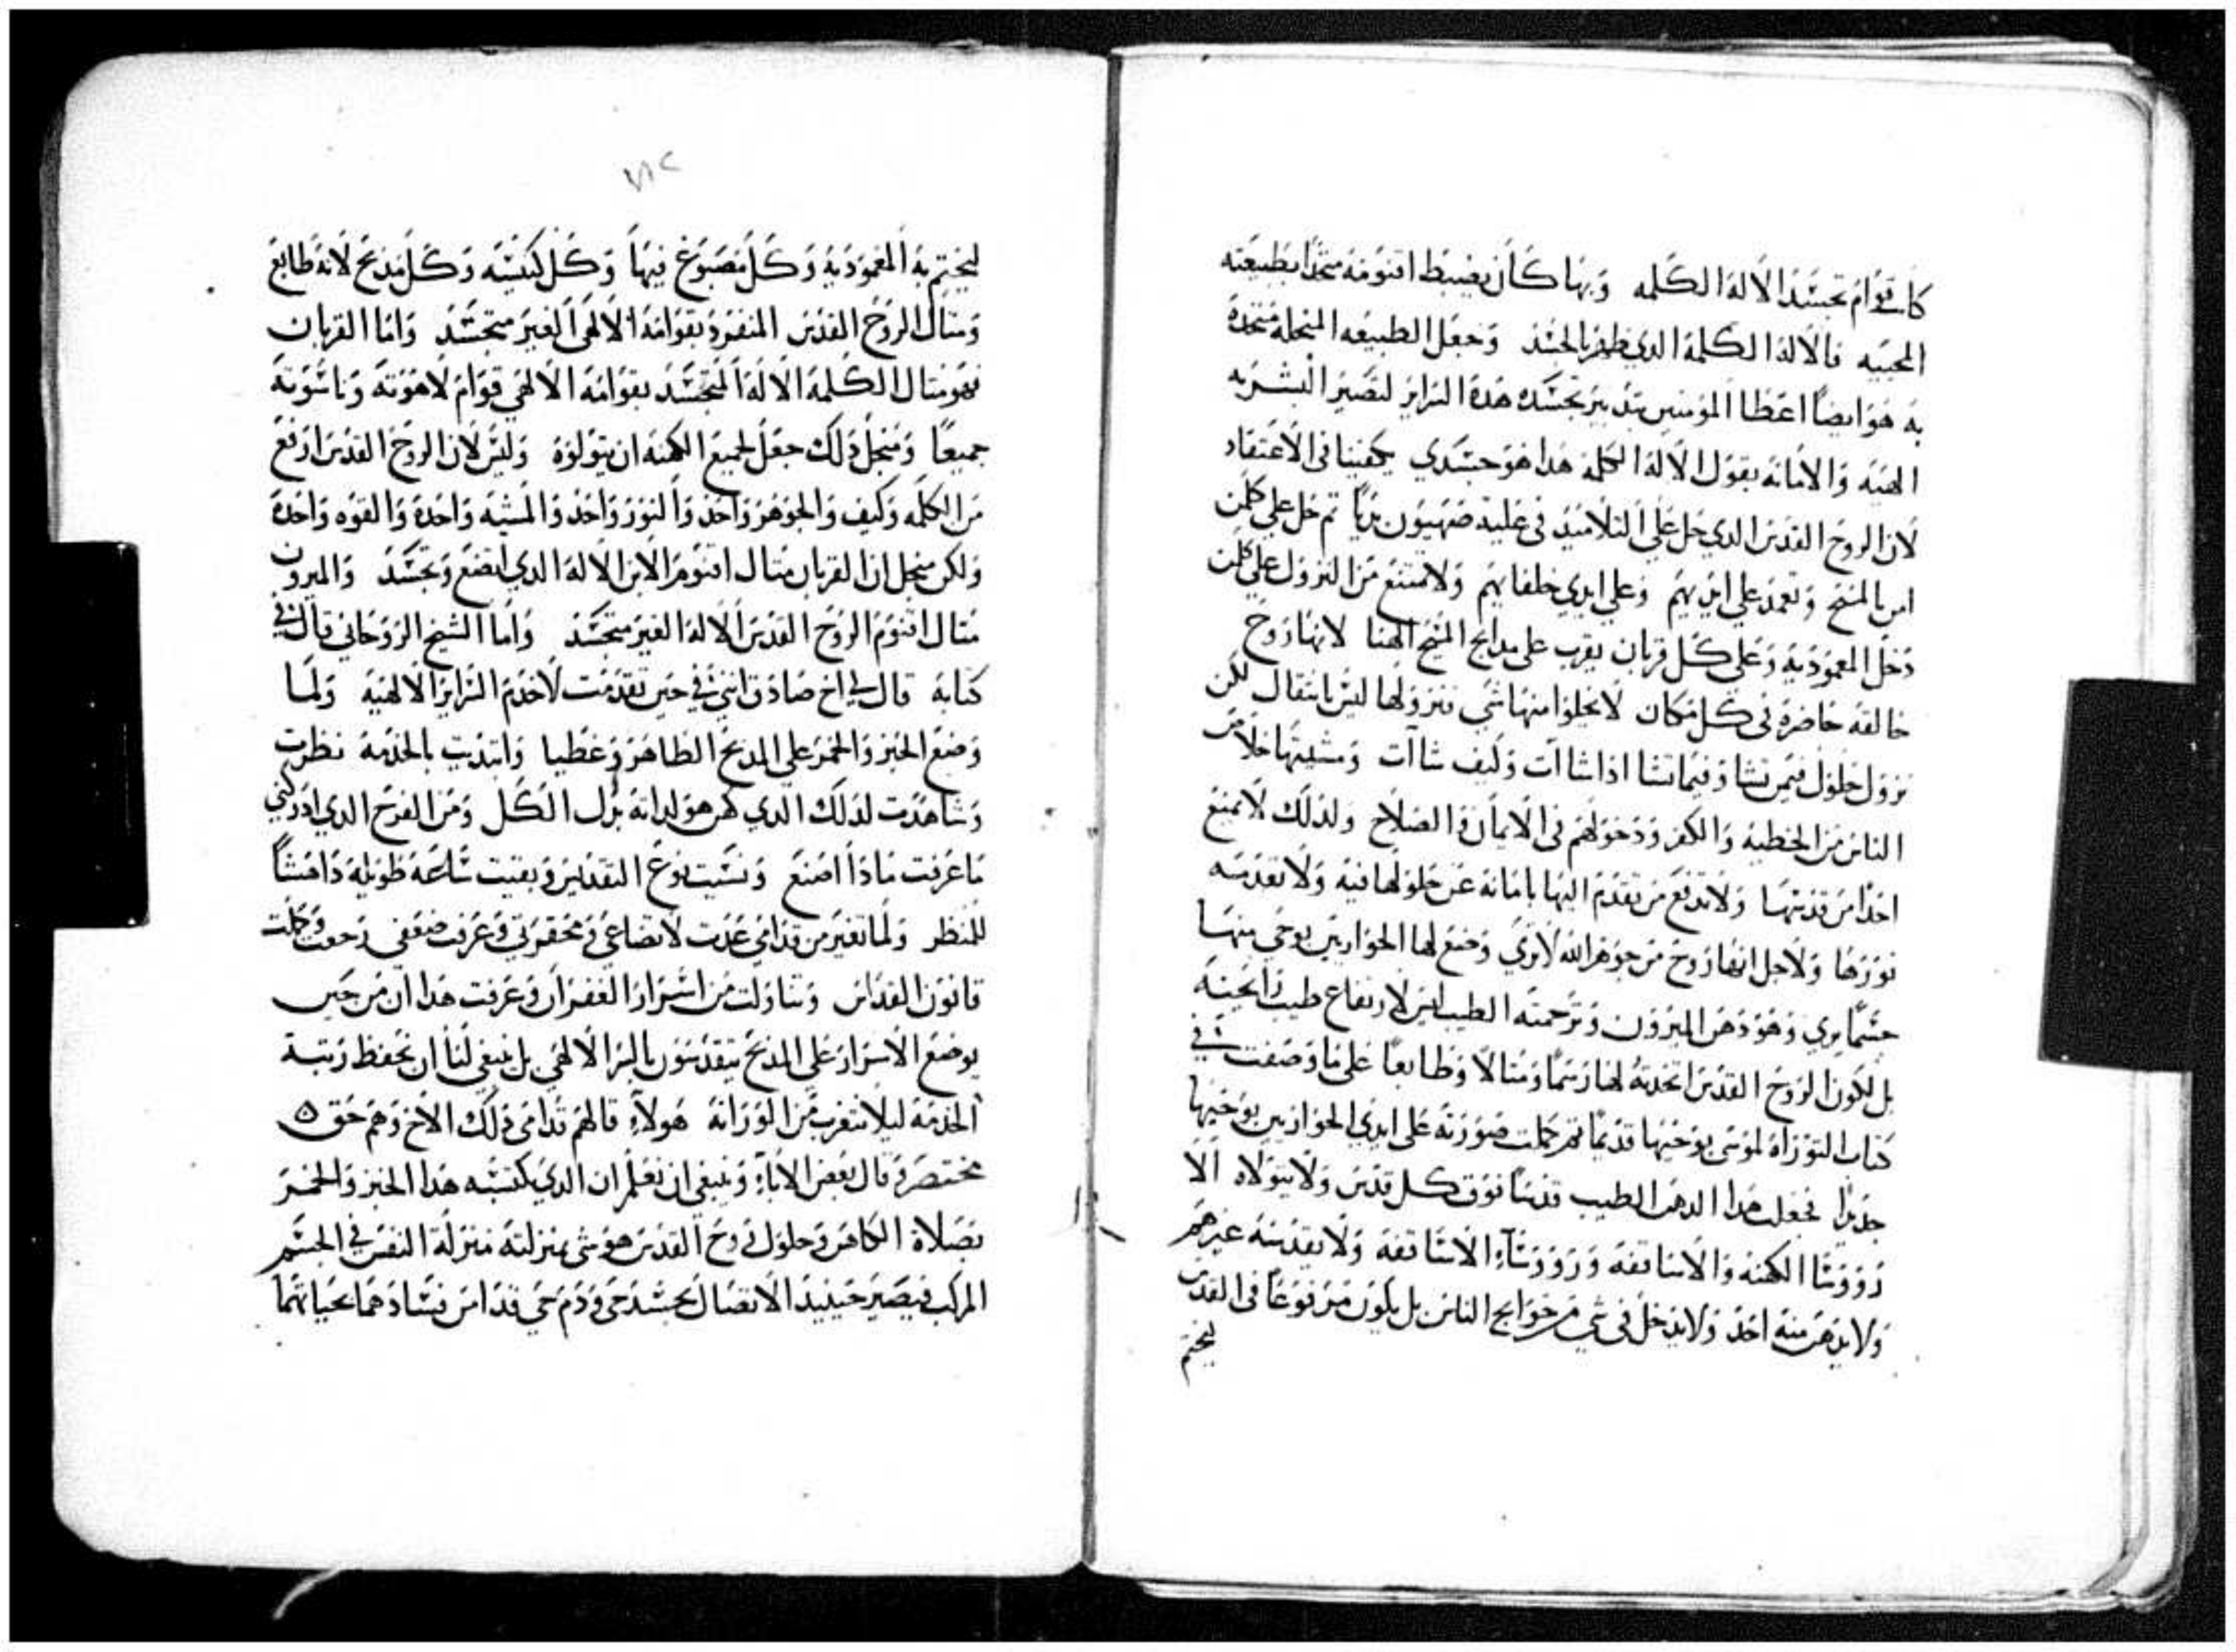 كان قوام تجسد الاله الكلمه وبها كان يضبط اقنومه متحدا بطبيعته
المحييه فالاله الكلمة الدي ظهر بالجسد وجعل الطبيعه المنحله متحدة
به هو ايضا اعطا المومنين بتدبير تجسده هدة السراير لتصير البشريه
الهيه والامانه بقول الاله الكلمة هدا هو جسدي يكفينا في الاعتقاد
لان الروح القدس الدي حل علي التلاميد في علية صهيون بديا تم حل علي كلمن
امن بالمسيح وتعمد علي ايديهم وعلي ايدي خلفايهم ولا تمتنع من النزول علي كلمن
دخل المعموديه وعلي كل قربان يقرب علي مدابح المسيح الهنا لانها روح
خالقه حاضرة في كل مكان لا يخلوا منها شي ونزولها ليس بانتقال لكن
نزول حلول فيمن تشا وفيما تشا ادا شاات وكيف شاات ومشيتها خلاص
الناس من الخطيه والكفر ودخولهم في الايمان والصلاح ولدلك لا تمنع
احدا من قدسها ولا تدفع من تقدم اليها بامانه عن حلولها فيه ولا تقدسه
نورها ولاجل انها روح من جوهر الله لا تري وضع لها الحواريين بوحي منها
جسما يري وهو دهن الميرون وترجمته الطيب ليس لارتفاع طيب رايحته
بل لكون الروح القدس اتخدته لها رسما ومتالا وطابعا علي ما وصفت في
كتاب التوراة لموسي بوحيها قديما تم كملت صورته علي ايدي الحواريين بوحيها
جديدا فجعلت هدا الدهن الطيب قدسا فوق كل قدس ولا يتولاه الا
رووسا الكهنه والاساقفه ورووساء الاساقفه ولا يقدسه غيرهم
ولا يدهن منه احد ولا يدخل في شي من حوايج الناس بل يكون مرفوعا في القدس
ليختم
٧١٢
ليختم به المعموديه وكل مصبوغ فيها وكل كنيسه وكل مدبح لانه طابع
ومتال الروح القدس المنفرد بقوامه الالهي الغير متجسد واما القربان
فهو متال الكلمة الاله المتجسد بقوامه الالهي قوام لاهوته وناسوته
جميعا ومنجل دلك جعل لجميع الكهنه ان يتولوة وليس لان الروح القدس ارفع
من الكلمه وكيف والجوهر واحد والنور واحد والمشيه واحدة والقوه واحدة
ولكن منجل ان القربان متال اقنوم الابن الاله الدي اتضع وتجسد والميرون
متال اقنوم الروح القدس الاله الغير متجسد واما الشيخ الروحاني قال في
كتابه قال لي اخ صادق انني في حين تقدمت لاخدم السراير الالهيه ولما
وضع الخبز والخمر علي المدبح الظاهر وغطيا وابتديت بالخدمه نظرت
وشاهدت لدلك الدي كمن هو لداته بدل الكل ومن الفرح الدي ادركني
ما عرفت مادا اصنع ونسيت نوع التقديس وبقيت ساعه طويله داهشا
للمنظر ولما تغير من قدامي عدت لاتضاعي ومحقرتي وعرفت ضعفي رجعت وكملت
قانون القداس وتناولت من اسرار الغفران وعرفت هدا ان من حين
يوضع الاسرار علي المدبح يتقدسون بالسر الالهي بل ينبغي لنا ان نحفظ رتبة
الخدمه ليلا نتغرب من الوراثه هولاء قالهم قدامي دلك الاخ وهم حق ٥
مختصره قال بعض الاباء وينبغي ان نعلم ان الدي يكتسبه هدا الخبز والخمر
بصلاة الكاهن وحلول روح القدس هو شي بمنزلته منزلة النفس في الجسم
المركب فيصير حينيد الاتصال بجسد حي ودم حي قدامن فسادهما بحياتهما